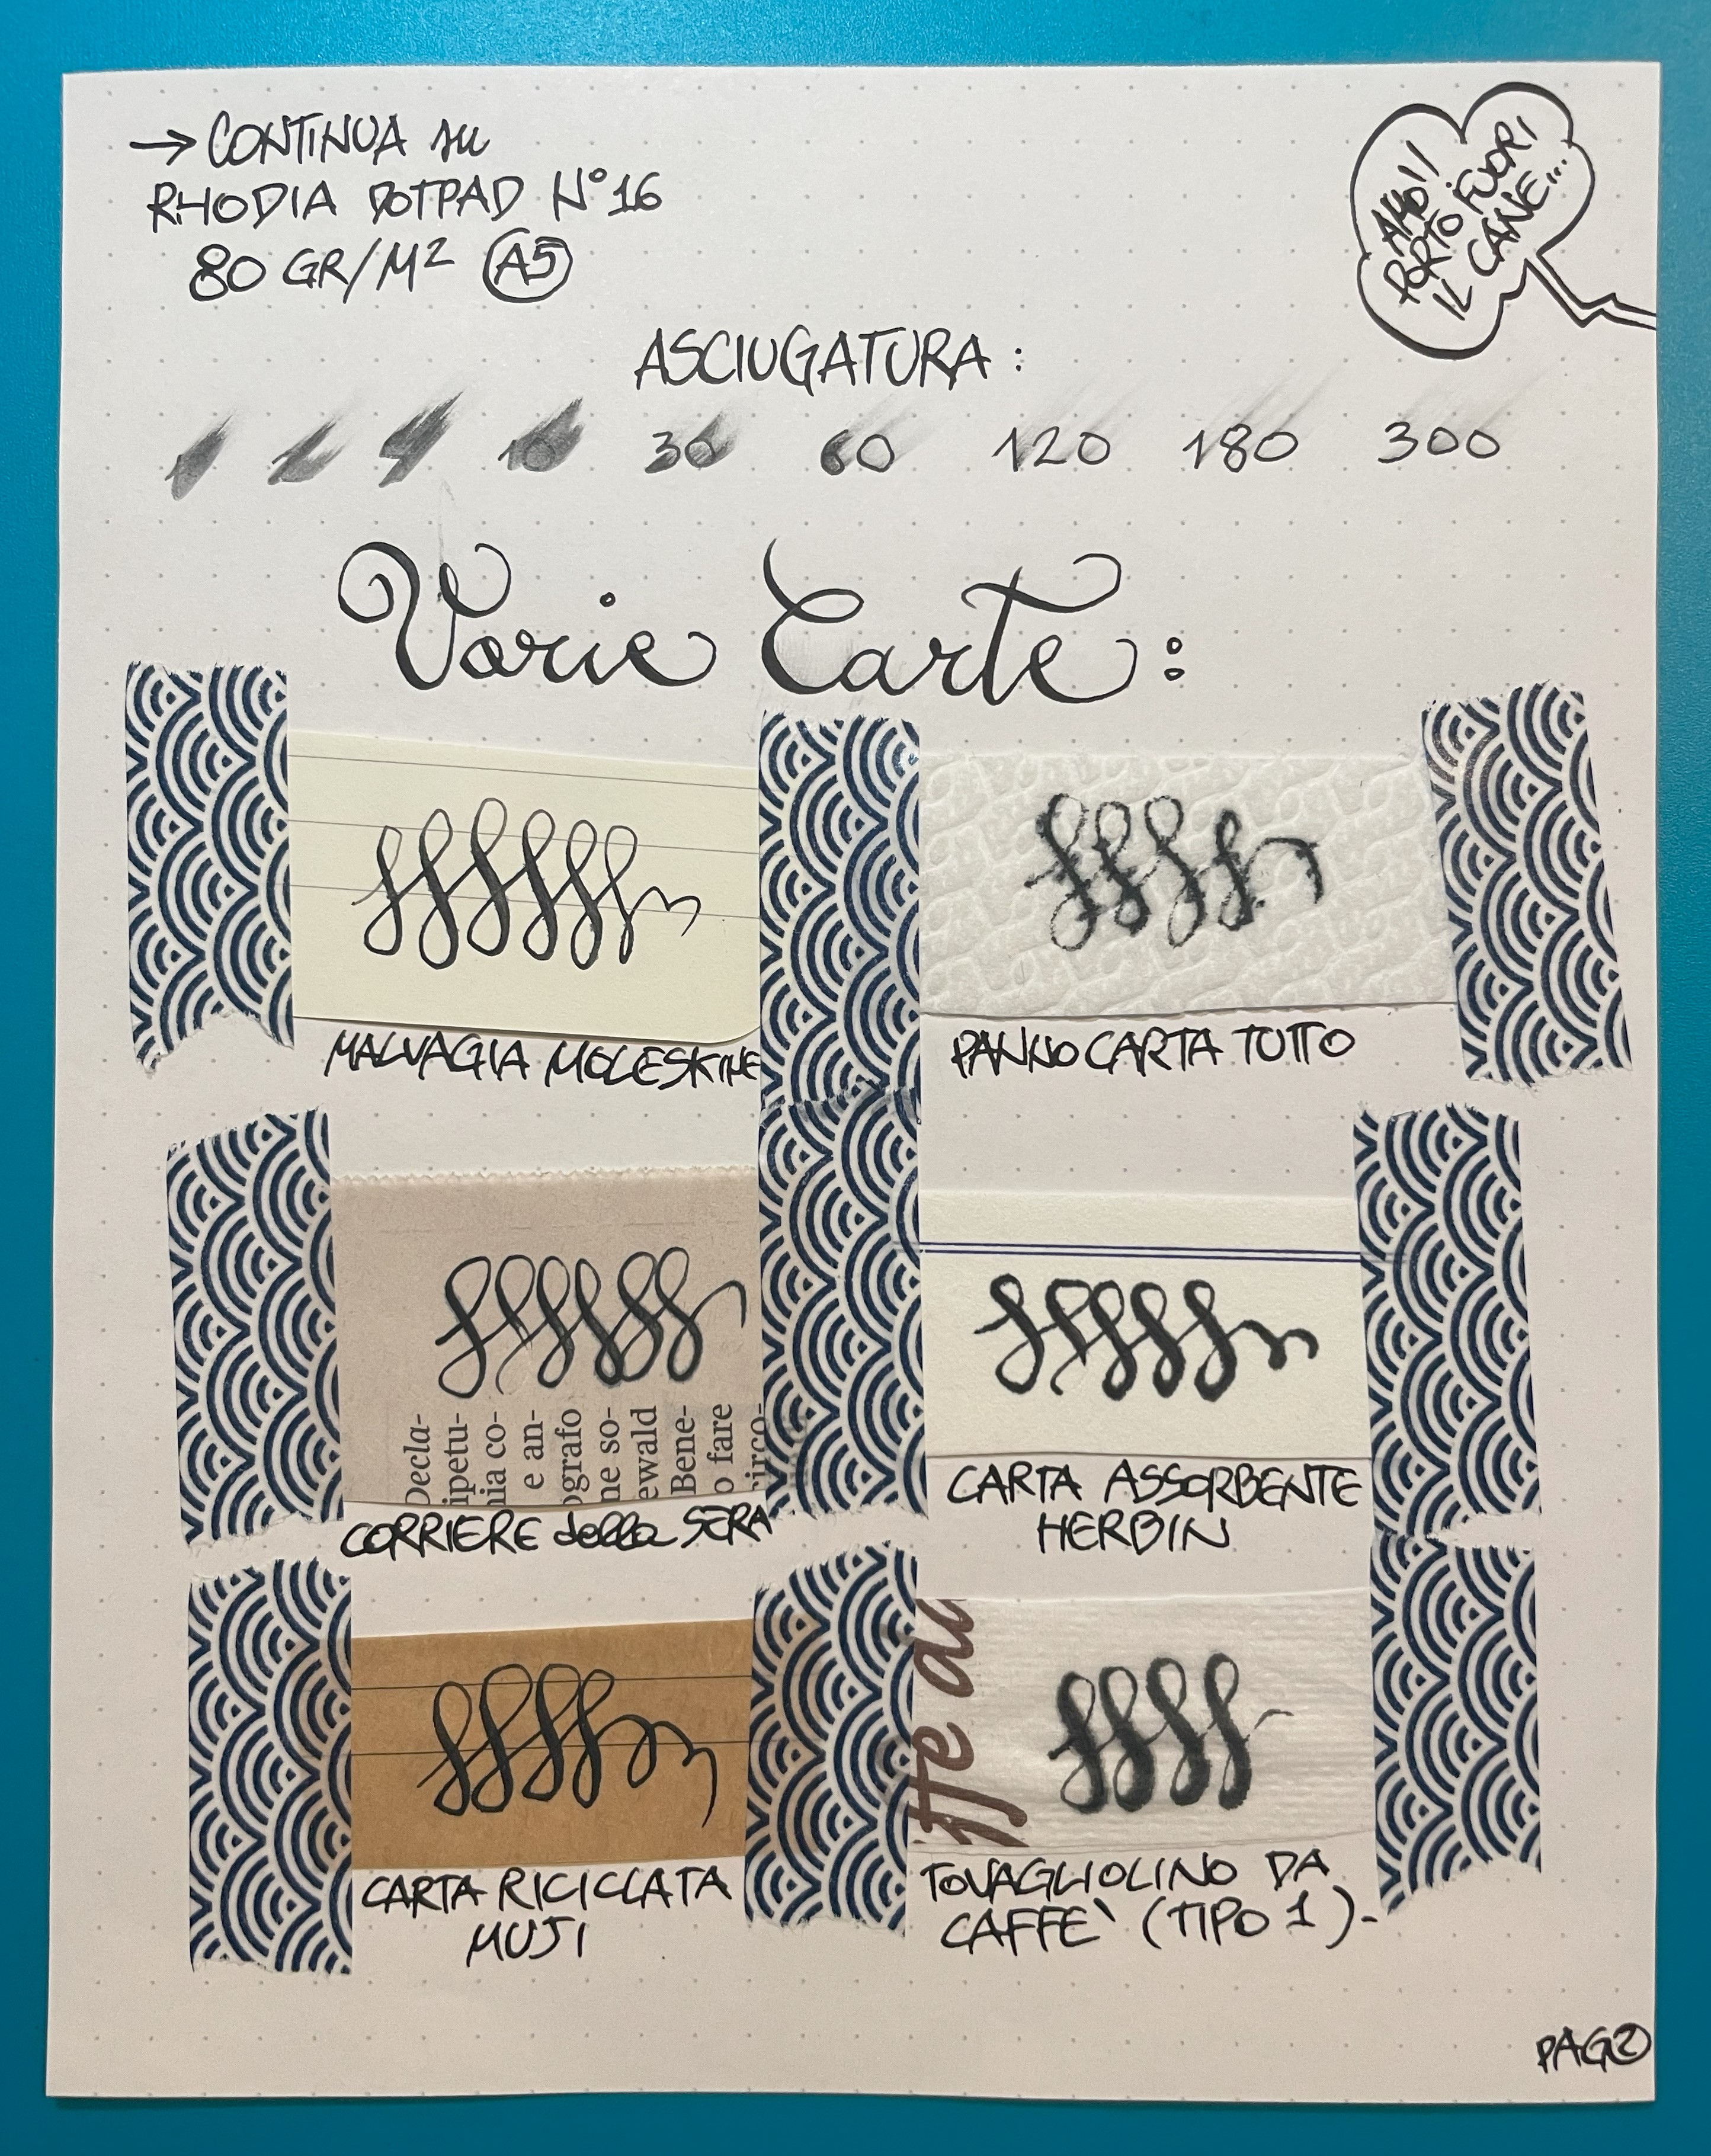 → CONTINUA su
RHODIA DOTPAD N°16
80 GR/M² A5
AMO!!
PORTO FUORI
IL CANE...
ASCIUGATURA:
1 2 4 10 30 60 120 180 300
Varie Carte:
MALVAGIA MOLESKINE
PANNOCARTA TUTTO
Decla-
ipetu-
nia co-
e an-
ografo
ne so-
ewald
Bene-
o fare
circo-
CORRIERE della SERA
CARTA ASSORBENTE
HERBIN
CARTA RICICLATA
MUJI
ffe di
TOVAGLIOLINO DA
CAFFE` (TIPO 1)-
PAG 2